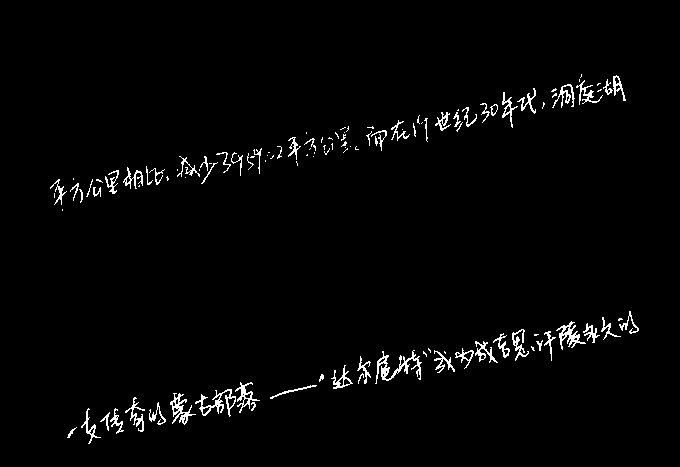 平方公里相比,减少3959.02平方公里。而在19世纪30年代,洞庭湖
一支传奇的蒙古部落——“达尔扈特”成为成吉思汗陵永久的